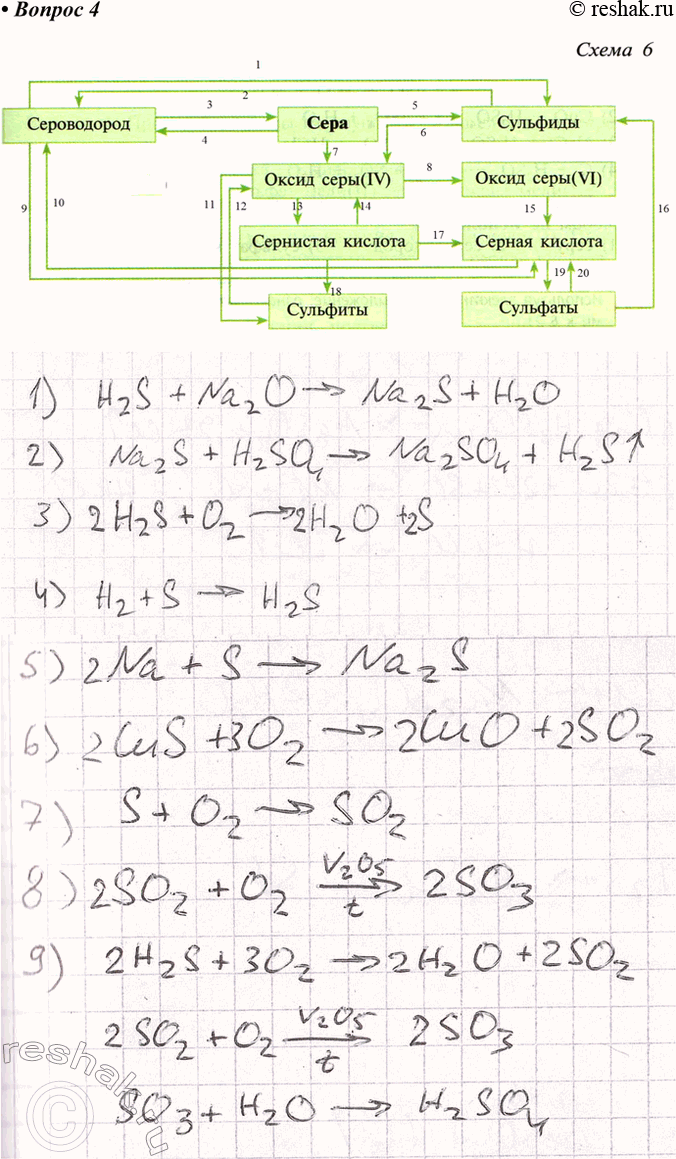 • Вопрос 4
© reshak.ru
Схема 6
1
2
Сероводород
3
4
Сера
5
6
Сульфиды
7
Оксид серы(IV)
8
Оксид серы(VI)
9
10
11
12
13
14
15
16
Сернистая кислота
17
Серная кислота
18
19
20
Сульфиты
Сульфаты
1) H₂S + Na₂O → Na₂S + H₂O
2) Na₂S + H₂SO₄ → Na₂SO₄ + H₂S↑
3) 2H₂S + O₂ → 2H₂O + 2S
4) H₂ + S → H₂S
5) 2Na + S → Na₂S
6) 2CuS + 3O₂ → 2CuO + 2SO₂
7) S + O₂ → SO₂
8) 2SO₂ + O₂ V₂O₅ → t 2SO₃
9) 2H₂S + 3O₂ → 2H₂O + 2SO₂
2SO₂ + O₂ V₂O₅ → t 2SO₃
SO₃ + H₂O → H₂SO₄
reshak.ru
©